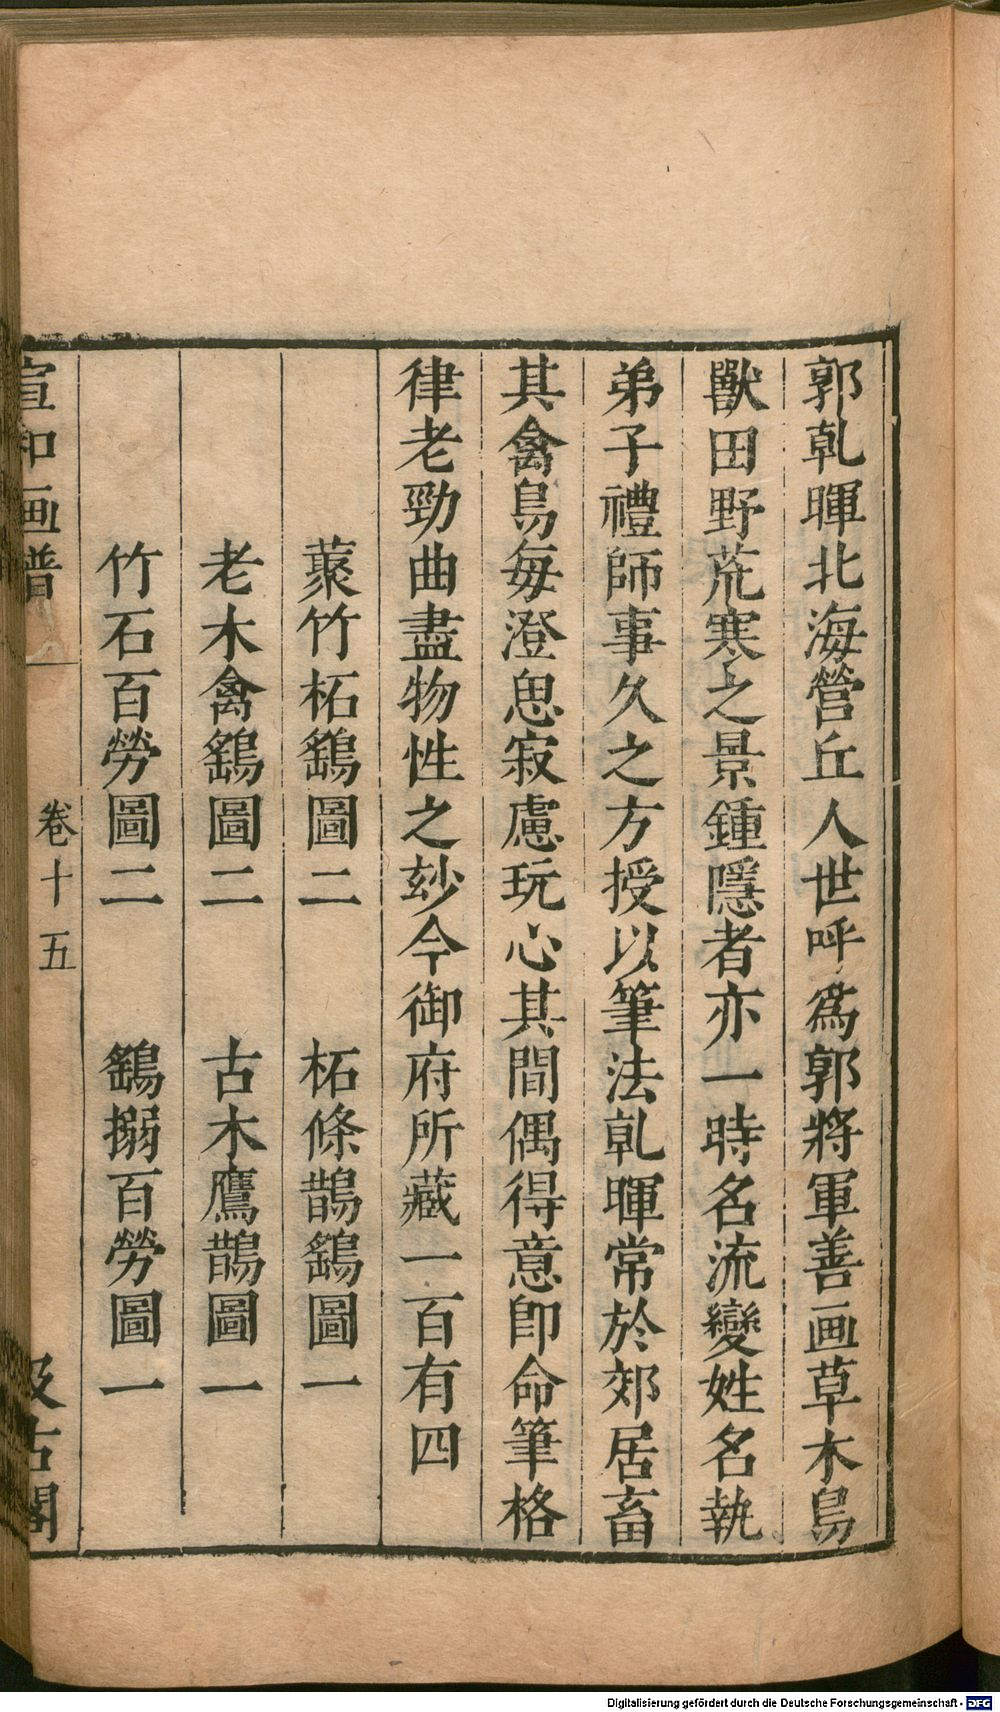 郭乹暉北海營丘人世呼爲郭將軍善画草木鳥
獸田野荒寒之景鍾隱者亦一時名流變姓名執
弟子禮師事久之方授以筆法乹暉常於郊居畜
其禽鳥每澄思寂慮玩心其間偶得意即命筆格
律老勁曲盡物性之玅今御府所藏一百有四
藂竹柘鷂圖二 柘條鵲鷂圖一
老木禽鷂圖二 古木鷹鵲圖一
竹石百勞圖二 鷂搦百勞圖一
宣和画譜 卷十五 汲古閣
Digitalisierung gefördert durch die Deutsche Forschungsgemeinschaft - DFG